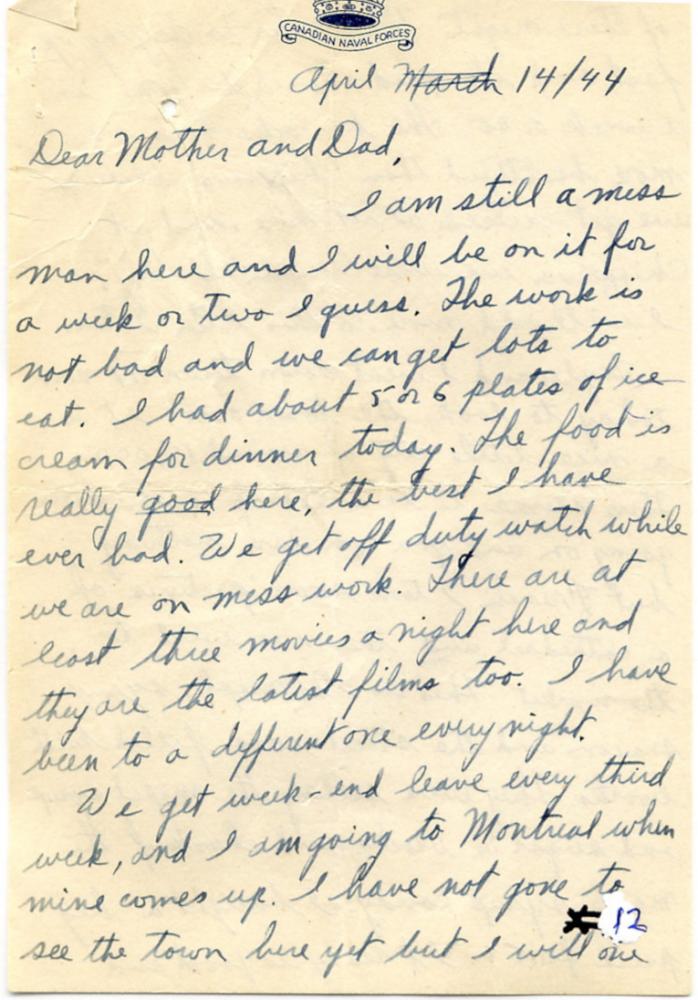 CANADIAN NAVAL FORCES
April March 14/44
Dear Mother and Dad,
I am still a mess
man here and I will be on it for
a week or two I guess. The work is
not bad and we can get lots to
eat. I had about 5 or 6 plates of ice
cream for dinner today. The food is
really good here, the best I have
ever had. We get off duty watch while
we are on mess work. There are at
least three movies a night here and
they are the latest films too. I have
been to a different one every night.
We get week-end leave every third
week, and I am going to Montreal when
mine comes up. I have not gone to
# 12
see the town here yet but I will one